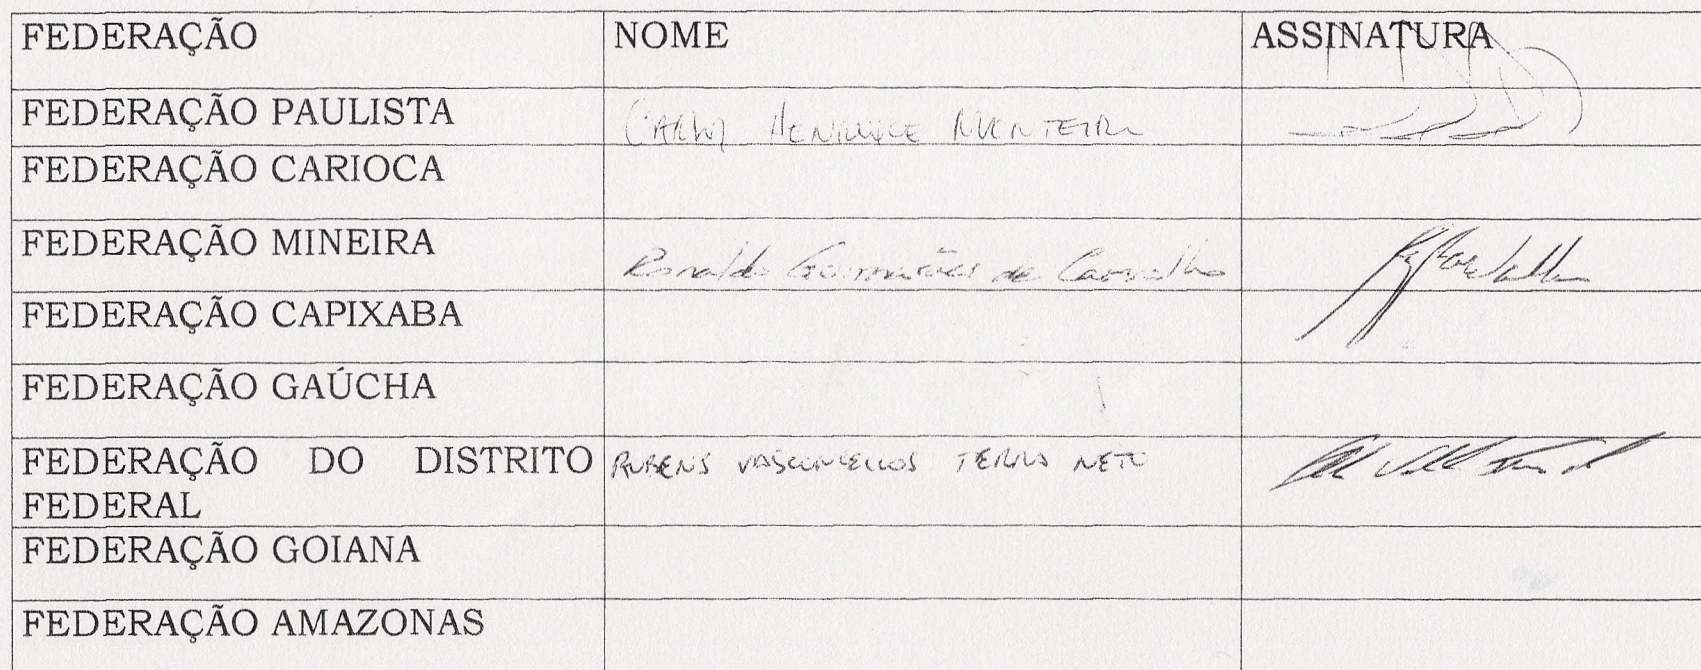 FEDERAÇÃO NOME ASSINATURA
FEDERAÇÃO PAULISTA HENRIQUE
FEDERAÇÃO CARIOCA
FEDERAÇÃO MINEIRA Ronaldo Guimarães de Carvalho
FEDERAÇÃO CAPIXABA
FEDERAÇÃO GAÚCHA
FEDERAÇÃO DO DISTRITO RUBENS VASCONCELLOS TERRA NETO
FEDERAL
FEDERAÇÃO GOIANA
FEDERAÇÃO AMAZONAS